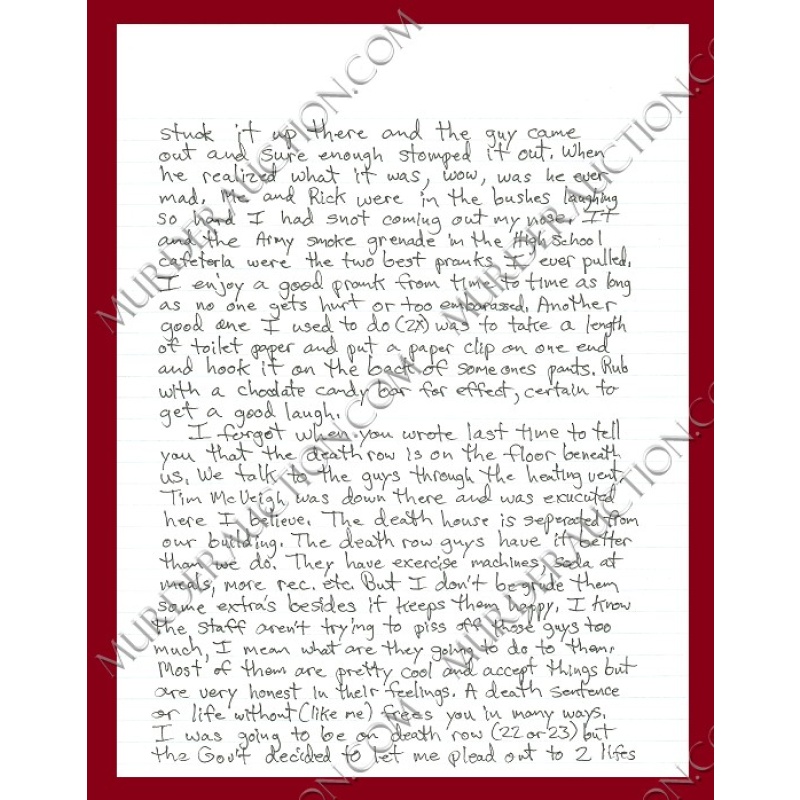 stuck it up there and the guy came
out and sure enough stomped it out. When
he realized what it was, wow, was he ever
mad. Me and Rick were in the bushes laughing
so hard I had snot coming out my nose. It
and the Army smoke grenade in the High School
cafeteria were the two best pranks I ever pulled.
I enjoy a good prank from time to time as long
as no one gets hurt or too embarassed. Another
good one I used to do (2X) was to take a length
of toilet paper and put a paper clip on one end
and hook it on the back of someones pants. Rub
with a chocolate candy bar for effect, certain to
get a good laugh.
I forgot when you wrote last time to tell
you that the death row is on the floor beneath
us. We talk to the guys through the heating vent.
Tim McVeigh was down there and was exucuted
here I believe. The death house is seperated from
our building. The death row guys have it better
than we do. They have exercise machines, soda at
meals, more rec. etc. But I don't begrude them
some extra's besides it keeps them happy. I know
the staff aren't trying to piss off those guys too
much, I mean what are they going to do to them.
Most of them are pretty cool and accept things but
are very honest in their feelings. A death sentence
or life without (like me) frees you in many ways.
I was going to be on death row (22 or 23) but
the Gov't decided to let me plead out to 2 lifes
MURDERAUCTION.COM
MURDERAUCTION.COM
MURDERAUCTION.COM
MURDERAUCTION.COM